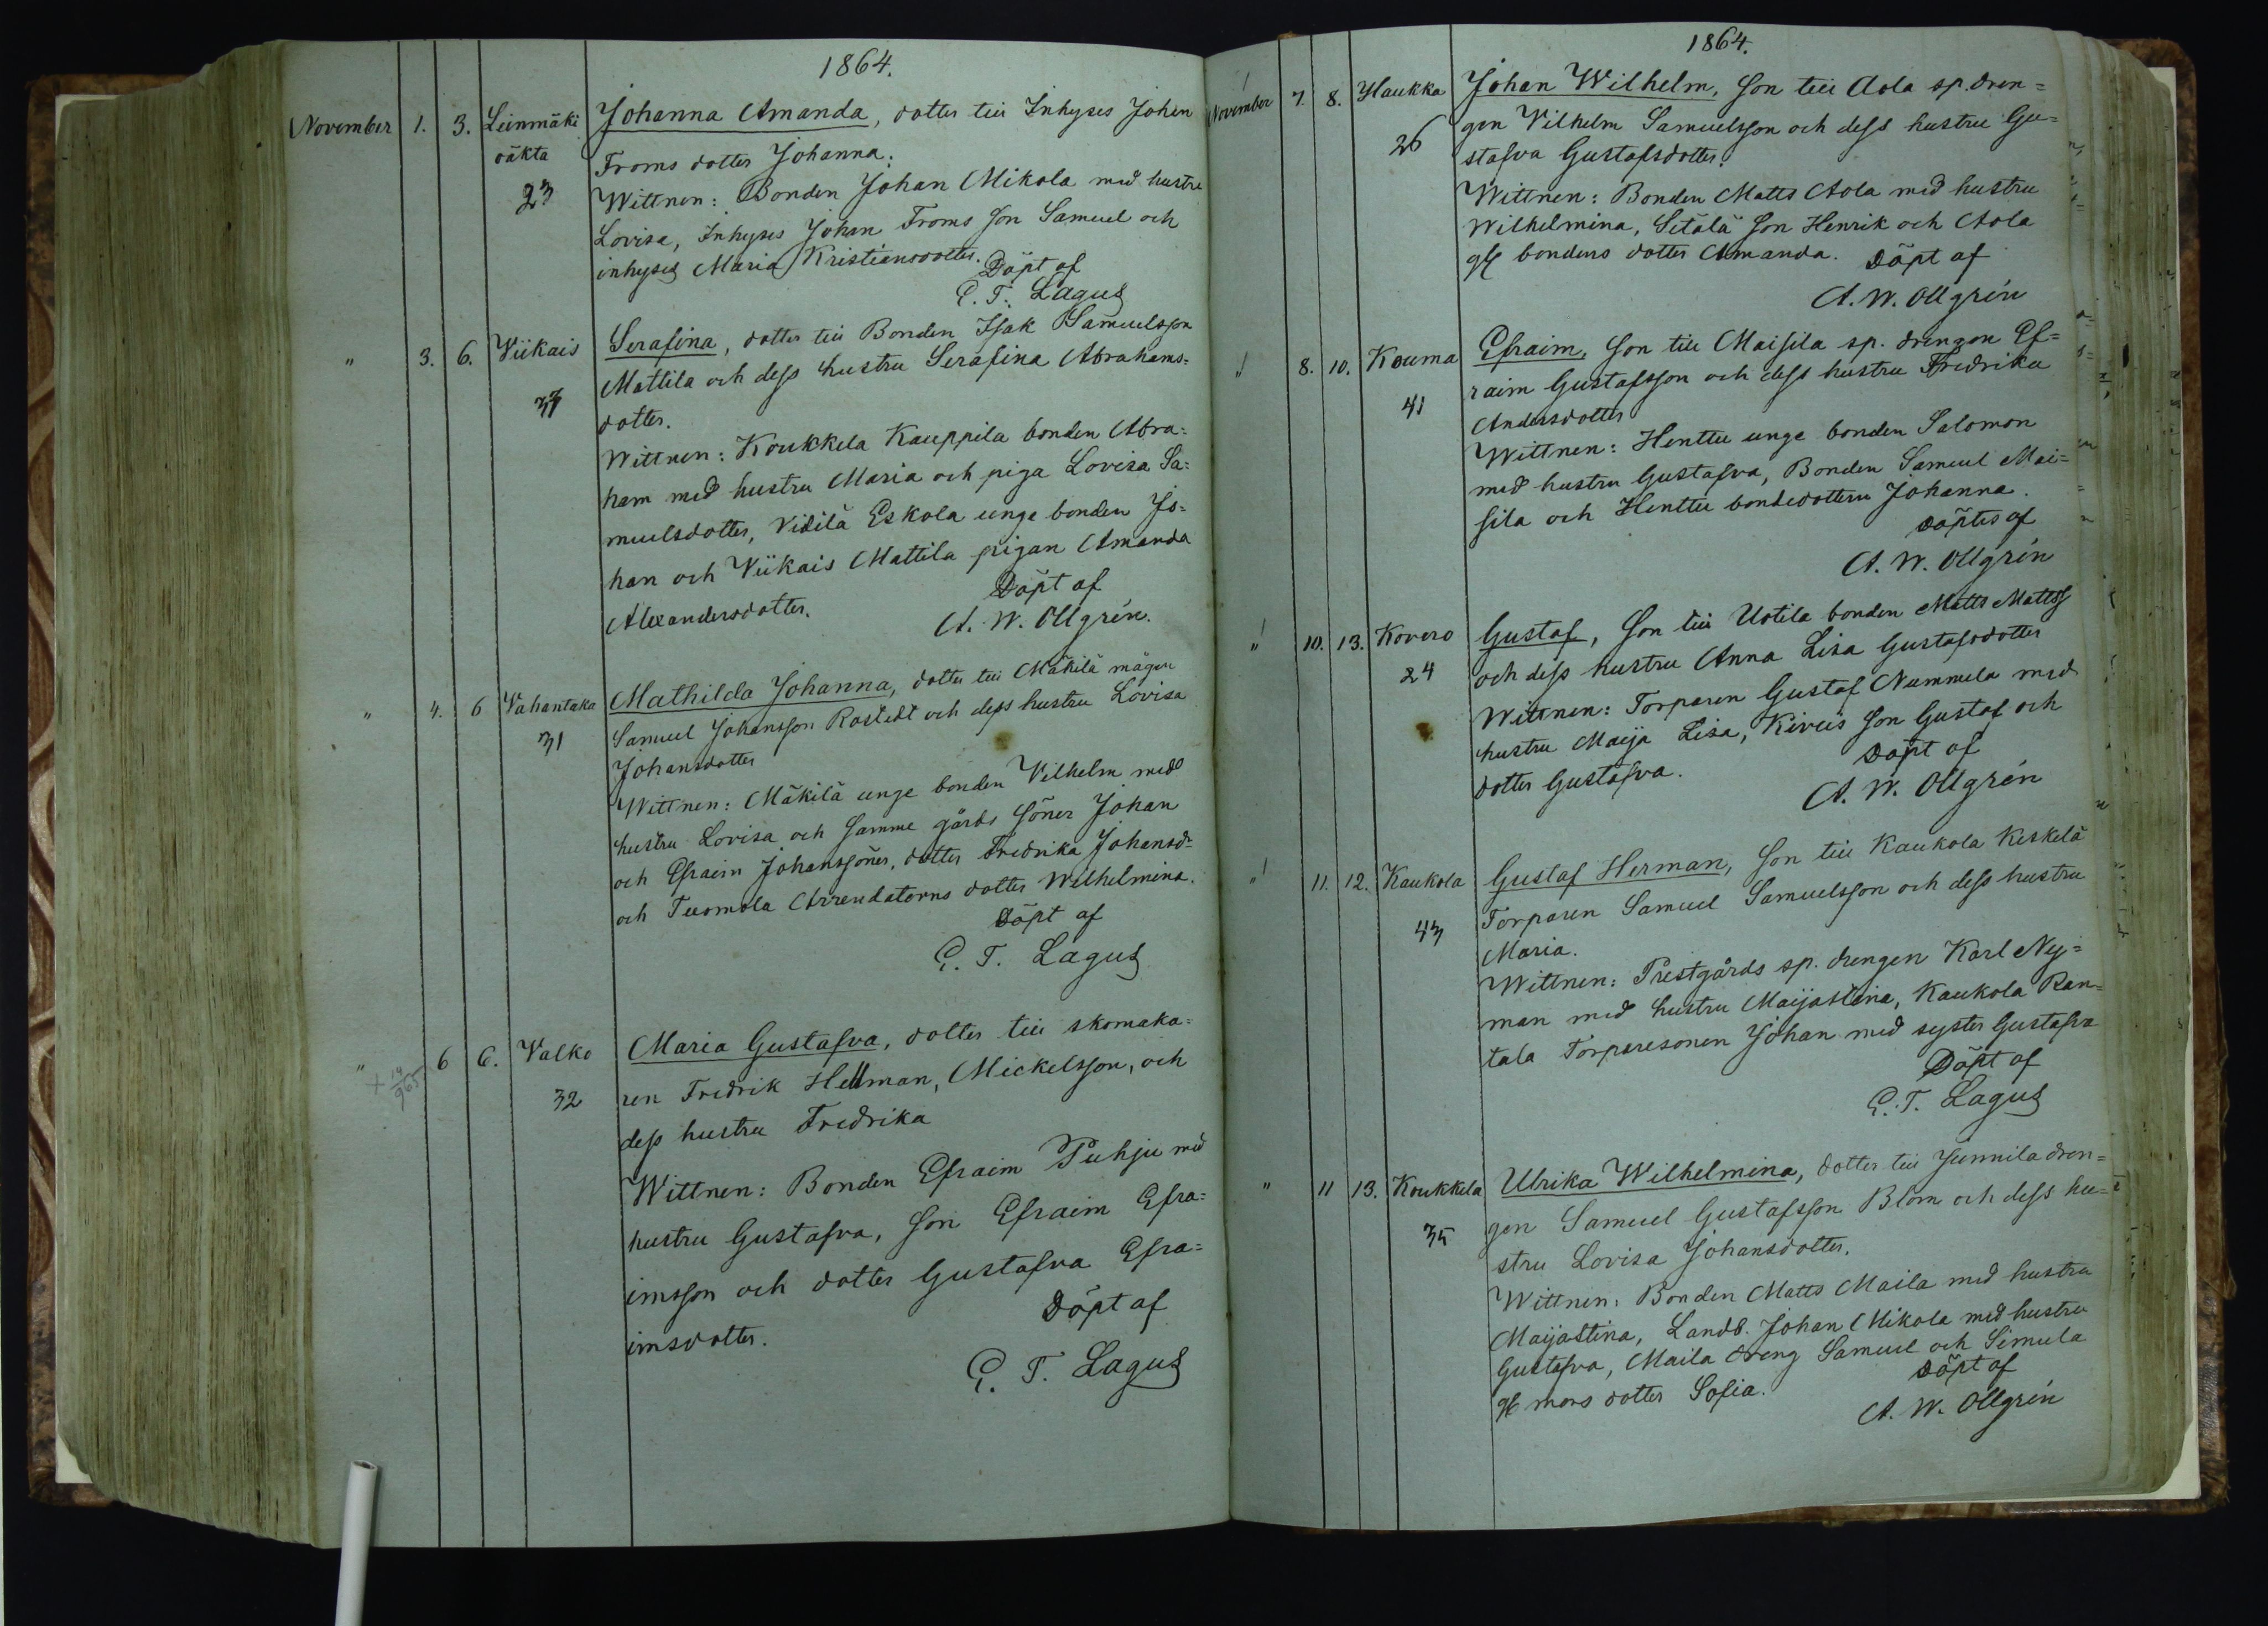 1864.
November 1. 3. Leinmäki Johanna Amanda, dotter till Inhyses Johan
oäkta Froms dotter Johanna.
23 Wittnen: Bonden Johan Mikola med hustru
Lovisa, Inhyses Johan Froms son Samuel och
inhyses Maria Kristiansdotter. Döpt af
E. T. Lagus
" 3. 6. Viikais Serafina, dotter till Bonden Isak Samuelsson
Mattila och dess hustru Serafina Abrahams=
dotter.
Wittnen: Koukkela Kauppila bonden Abra=
ham med hustru Maria och piga Lovisa Sa=
muelsdotter, Vidilä Eskola unge bonden Jo=
han och Viikais Mattila pigan Amanda
Alexandersdotter. Döpt af
A. W. Ollgrén.
" 4. 6 Vahantaka Mathilda Johanna, dotter till Mäkilä mågen
31 Samuel Johansson Rostedt och dess hustru Lovisa
Johansdotter
Wittnen: Mäkilä unge bonden Vilhelm med
hustru Lovisa och samme gårds söner Johan
och Efraim Johanssöner, dotter Fredrika Johansd=
och Tuomola Arrendatorns dotter Wilhelmina.
Döpt af
E. T. Lagus
" 6 6. Valko Maria Gustafva, dotter till skomaka=
32 ren Fredrik Hellman, Mickelsson, och
dess hustru Fredrika
Wittnen: Bonden Efraim Puhju med
hustru Gustafva, son Efraim Efra=
imsson och dotter Gustafva Efra=
imsdotter. Döpt af
E. T. Lagus
1864.
November 7. 8. Haukka Johan Wilhelm, son till Aola sp. dren=
26 gen Vilhelm Samuelsson och dess hustru Gu=
stafva Gustafsdotter.
Wittnen: Bonden Matts Aola med hustru
Wilhelmina, Setälä son Henrik och Aola
gl bondens dotter Amanda. Döpt af
A. W. Ollgrén
" 8. 10. Kouma Efraim, son till Maisila sp. drengen Ef=
41 raim Gustafsson och dess hustru Fredrika
Andersdotter
Wittnen: Henttu unge bonden Salomon
med hustru Gustafva, Bonden Samuel Mai=
sila och Henttu bondedottern Johanna.
Döptes af
A. W. Ollgrén
" 10. 13. Kovero Gustaf, son till Uotila bonden Matts Mattss
24 och dess hustru Anna Lisa Gustafsdotter
Wittnen: Torparen Gustaf Nummela med
hustru Maija Lisa, Kiviis son Gustaf och
dotter Gustafva. Döpt af
A. W. Ollgrén
" 11. 12. Kaukola Gustaf Herman, son till Kaukola Keskelä
43 Torparen Samuel Samuelsson och dess hustru
Maria.
Wittnen: Prestgårds sp. drengen Karl Ny=
man med hustru Maijastina, Kaukola Ran=
tala Torparesonen Johan med syster Gustafva
Döpt af
E. T. Lagus
" 11 13. Koukkela Ulrika Wilhelmina, dotter till Junnila dren=
35 gen Samuel Gustafsson Blom och dess hu=
stru Lovisa Johansdotter.
Wittnen: Bonden Matts Maila med hustru
Maijastina, Landb. Johan Mikola med hustru
Gustafva, Maila dreng Samuel och Simula
gl mors dotter Sofia. Döpt af
A. W. Ollgrén